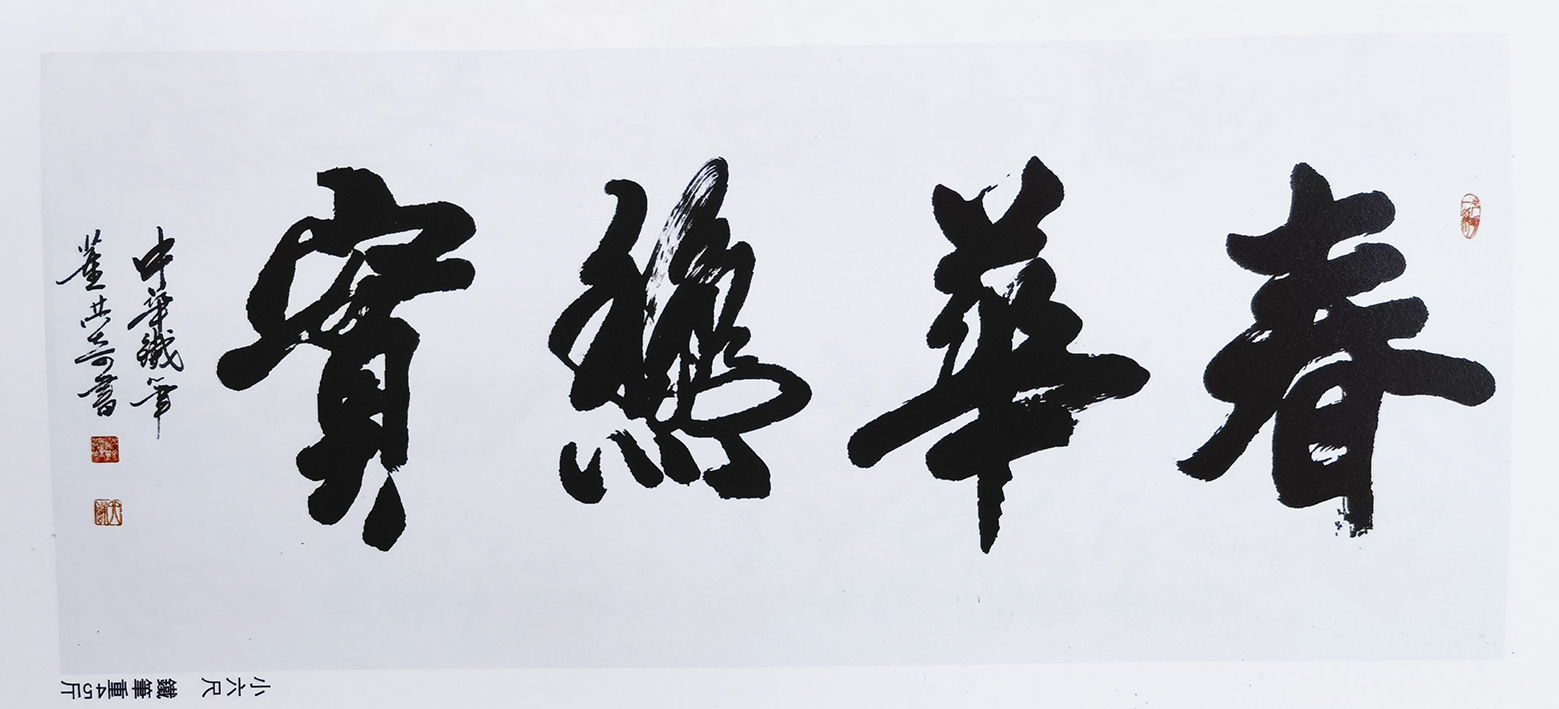 春華龝實
中華鐵筆
董洪奇書
小六尺 鐵筆重45斤